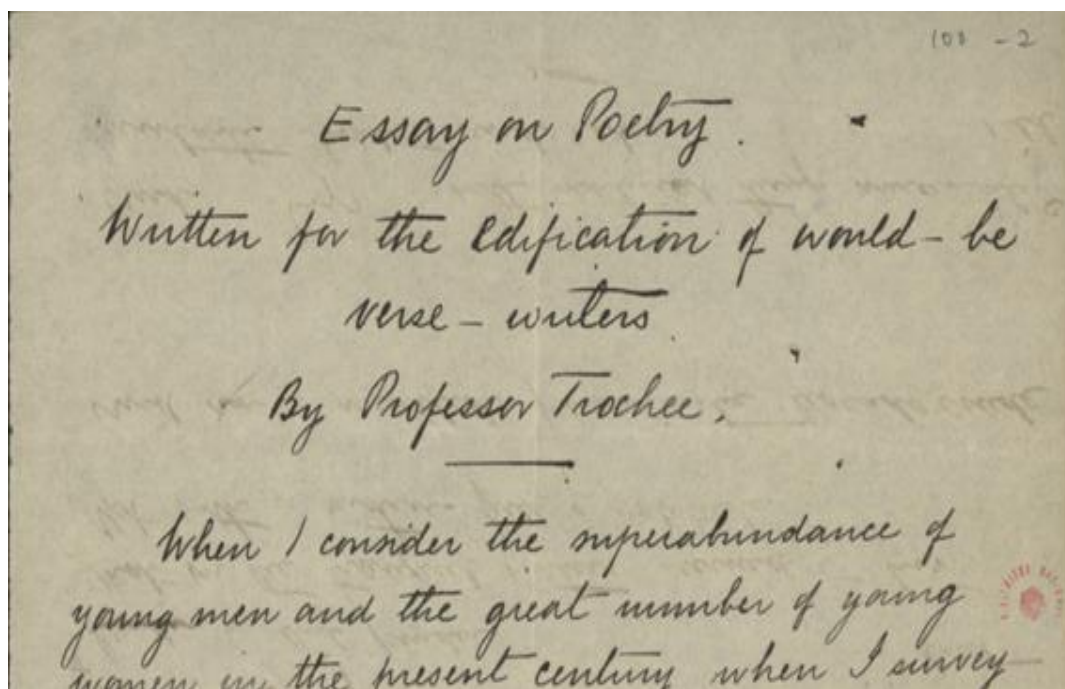 108 - 2
Essay on Poetry.
Written for the Edification of would-be
verse-writers.
By Professor Trochee.
When I consider the superabundance of
young men and the great number of young
women in the present century when I survey